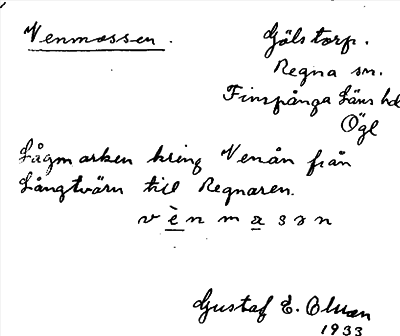 Venmossen.
Gölstorp.
Regna sn.
Finspånga läns hd
Ögl
Lågmarken kring Venån från
Långtvärn till Regnaren.
v è n m a s ɘ n
Gustaf E. Olsson
1933